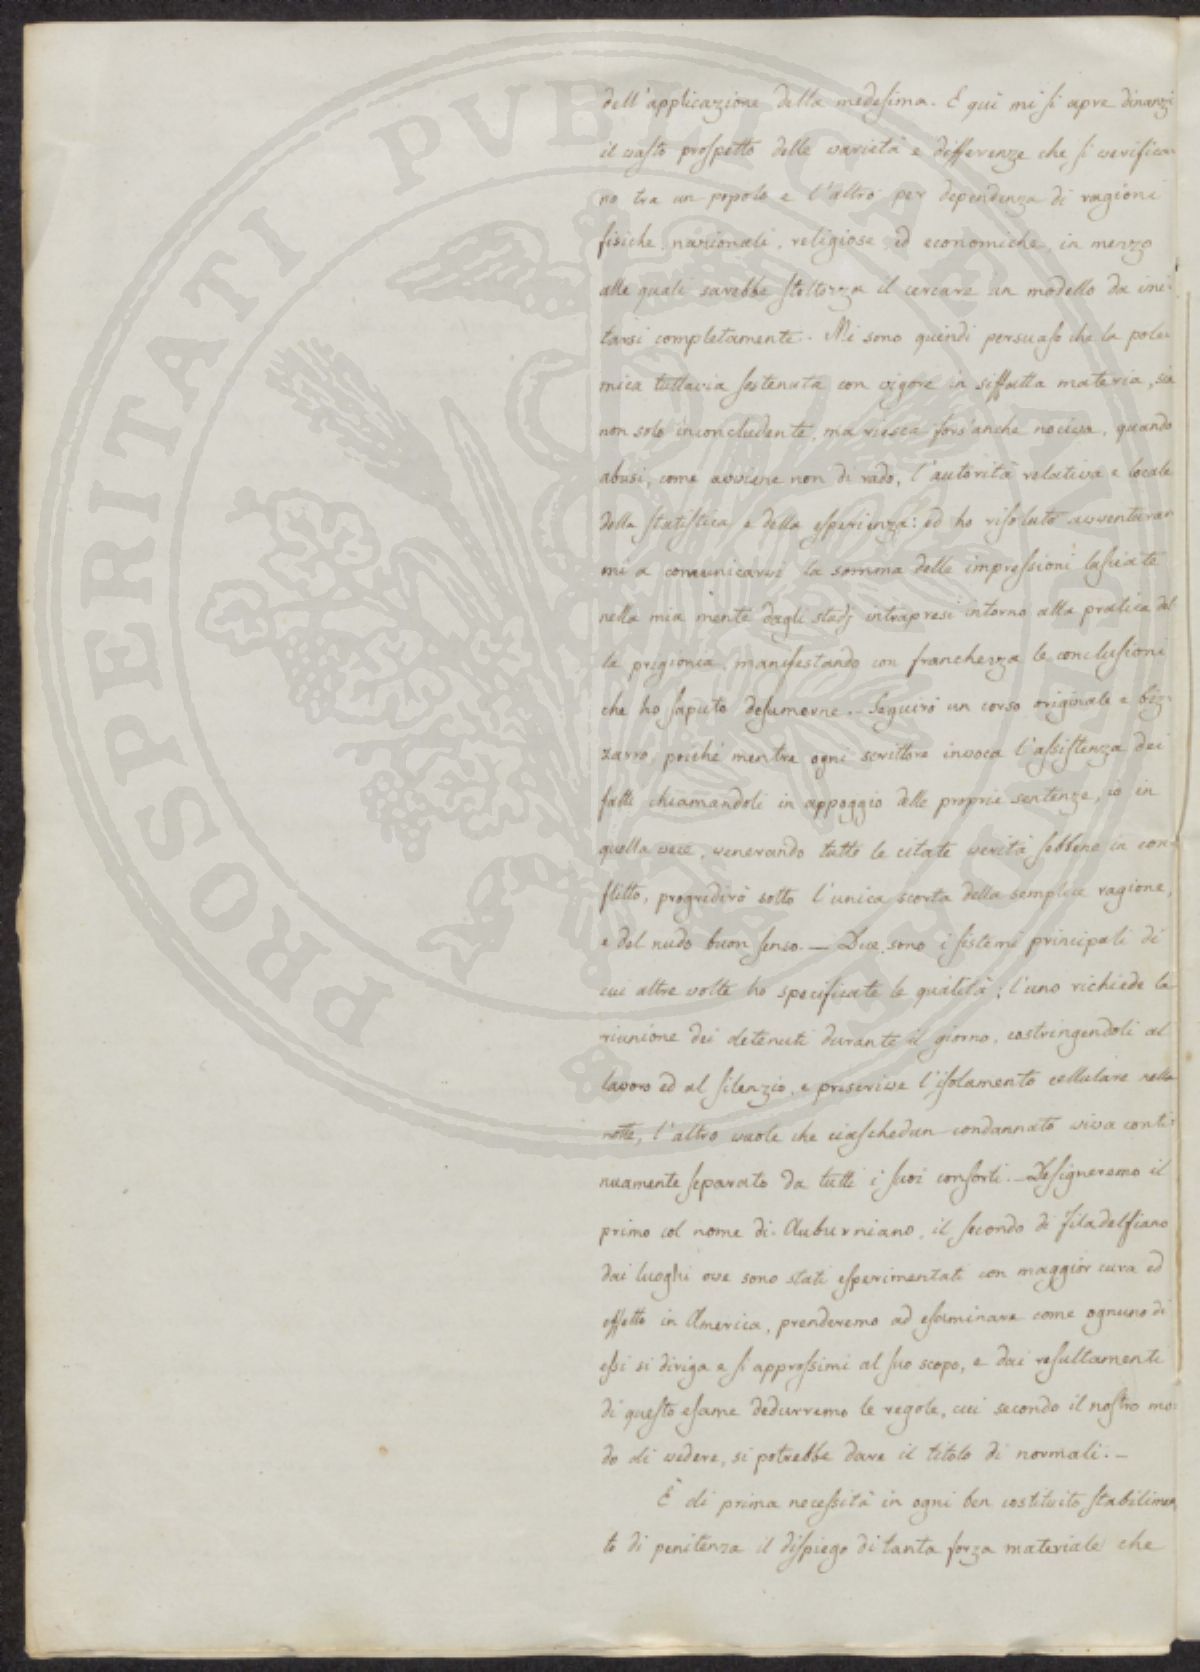 PROSPERITATI PVBLICAE
dell'applicazione della medesima. E qui mi si apre dinanzi
il vasto prospetto delle varietà e differenze che si verifica-
no tra un popolo e l'altro per dependenza di ragioni
fisiche, nazionali, religiose, ed economiche, in mezzo
alle quali sarebbe stoltezza il cercare un modello da imi-
tarsi completamente. Mi sono quindi persuaso che la pole-
mica tuttavia sostenuta con vigore in siffatta materia, sia
non solo inconcludente, ma riesca fors'anche nociva, quando
abusi, come avviene non di rado, l'autorità relativa e locale
della statistica e della esperienza: ed ho risoluto avventurar-
mi a comunicarvi la somma delle impressioni lasciate
nella mia mente dagli studj intrapresi intorno alla pratica del-
la prigionia, manifestando con franchezza le conclusioni
che ho saputo desumerne. — Seguirò un corso originale e biz-
zarro, poiché mentre ogni scrittore invoca l'assistenza dei
fatti chiamandoli in appoggio delle proprie sentenze, io in
quella vece, venerando tutte le citate verità sebbene in con-
flitto, progredirò sotto l'unica scorta della semplice ragione,
e del nudo buon senso. — Due sono i sistemi principali di
cui altre volte ho specificate le qualità; l'uno richiede la
riunione dei detenuti durante il giorno, costringendoli al
lavoro ed al silenzio, e prescrive l'isolamento cellulare nella
notte, l'altro vuole che ciaschedun condannato viva conti-
nuamente separato da tutti i suoi consorti. — Designeremo il
primo col nome di Auburniano, il secondo di Filadelfiano
dai luoghi ove sono stati esperimentati con maggior cura ed
effetto in America, prenderemo ad esaminare come ognuno di
essi si diriga e si approssimi al suo scopo, e dai resultamenti
di questo esame dedurremo le regole, cui secondo il nostro mo-
do di vedere, si potrebbe dare il titolo di normali. —
È di prima necessità in ogni ben costituito stabilimen-
to di penitenza il dispiego di tanta forza materiale che